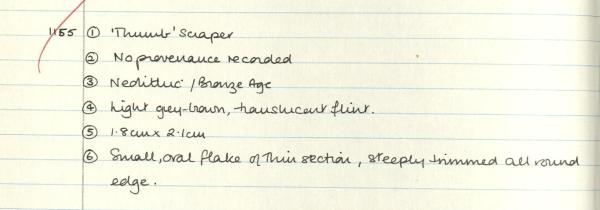 1155 ① 'Thumb' Scraper
② No provenance recorded
③ Neolithic / Bronze Age
④ Light grey-brown, translucent flint.
⑤ 1.8cm x 2.1cm
⑥ Small, oval flake of thin section, steeply trimmed all round
edge.